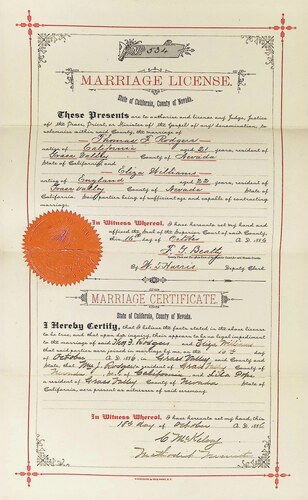 No. 534
MARRIAGE LICENSE.
State of California, County of Nevada.
These Presents are to authorize and license any Judge, Justice
of the Peace, Priest, or Minister of the Gospel of any denomination, to
solemnize within said County, the marriage of
Thomas F Rodgers
native of California aged 21 years, resident of
Grass Valley County of Nevada
State of California, and
Eliza Williams
native of England aged 22 years, resident of
Grass Valley County of Nevada State of
California, said parties being of sufficient age and capable of contracting
marriage.
In Witness Whereof, I have hereunto set my hand and
affixed the Seal of the Superior Court of said County,
this 16th day of October A. D. 1886
By W. D. Harris Deputy Clerk
MARRIAGE CERTIFICATE.
State of California, County of Nevada.
I Hereby Certify, that I believe the facts stated in the above license
to be true, and that upon due inquiry, there appears to be no legal impediment
to the marriage of said Thos. F. Rodgers and Eliza Williams
that said parties were joined in marriage by me, on the
October A. D. 1886 in Grass Valley, said County and
State; that
a resident of Grass Valley County of Nevada State of
California, are present as witnesses of said ceremony.
In Witness Whereof, I have hereunto set my hand, this
18th day of October A. D. 1886
C McKelvey
Methodist Minister